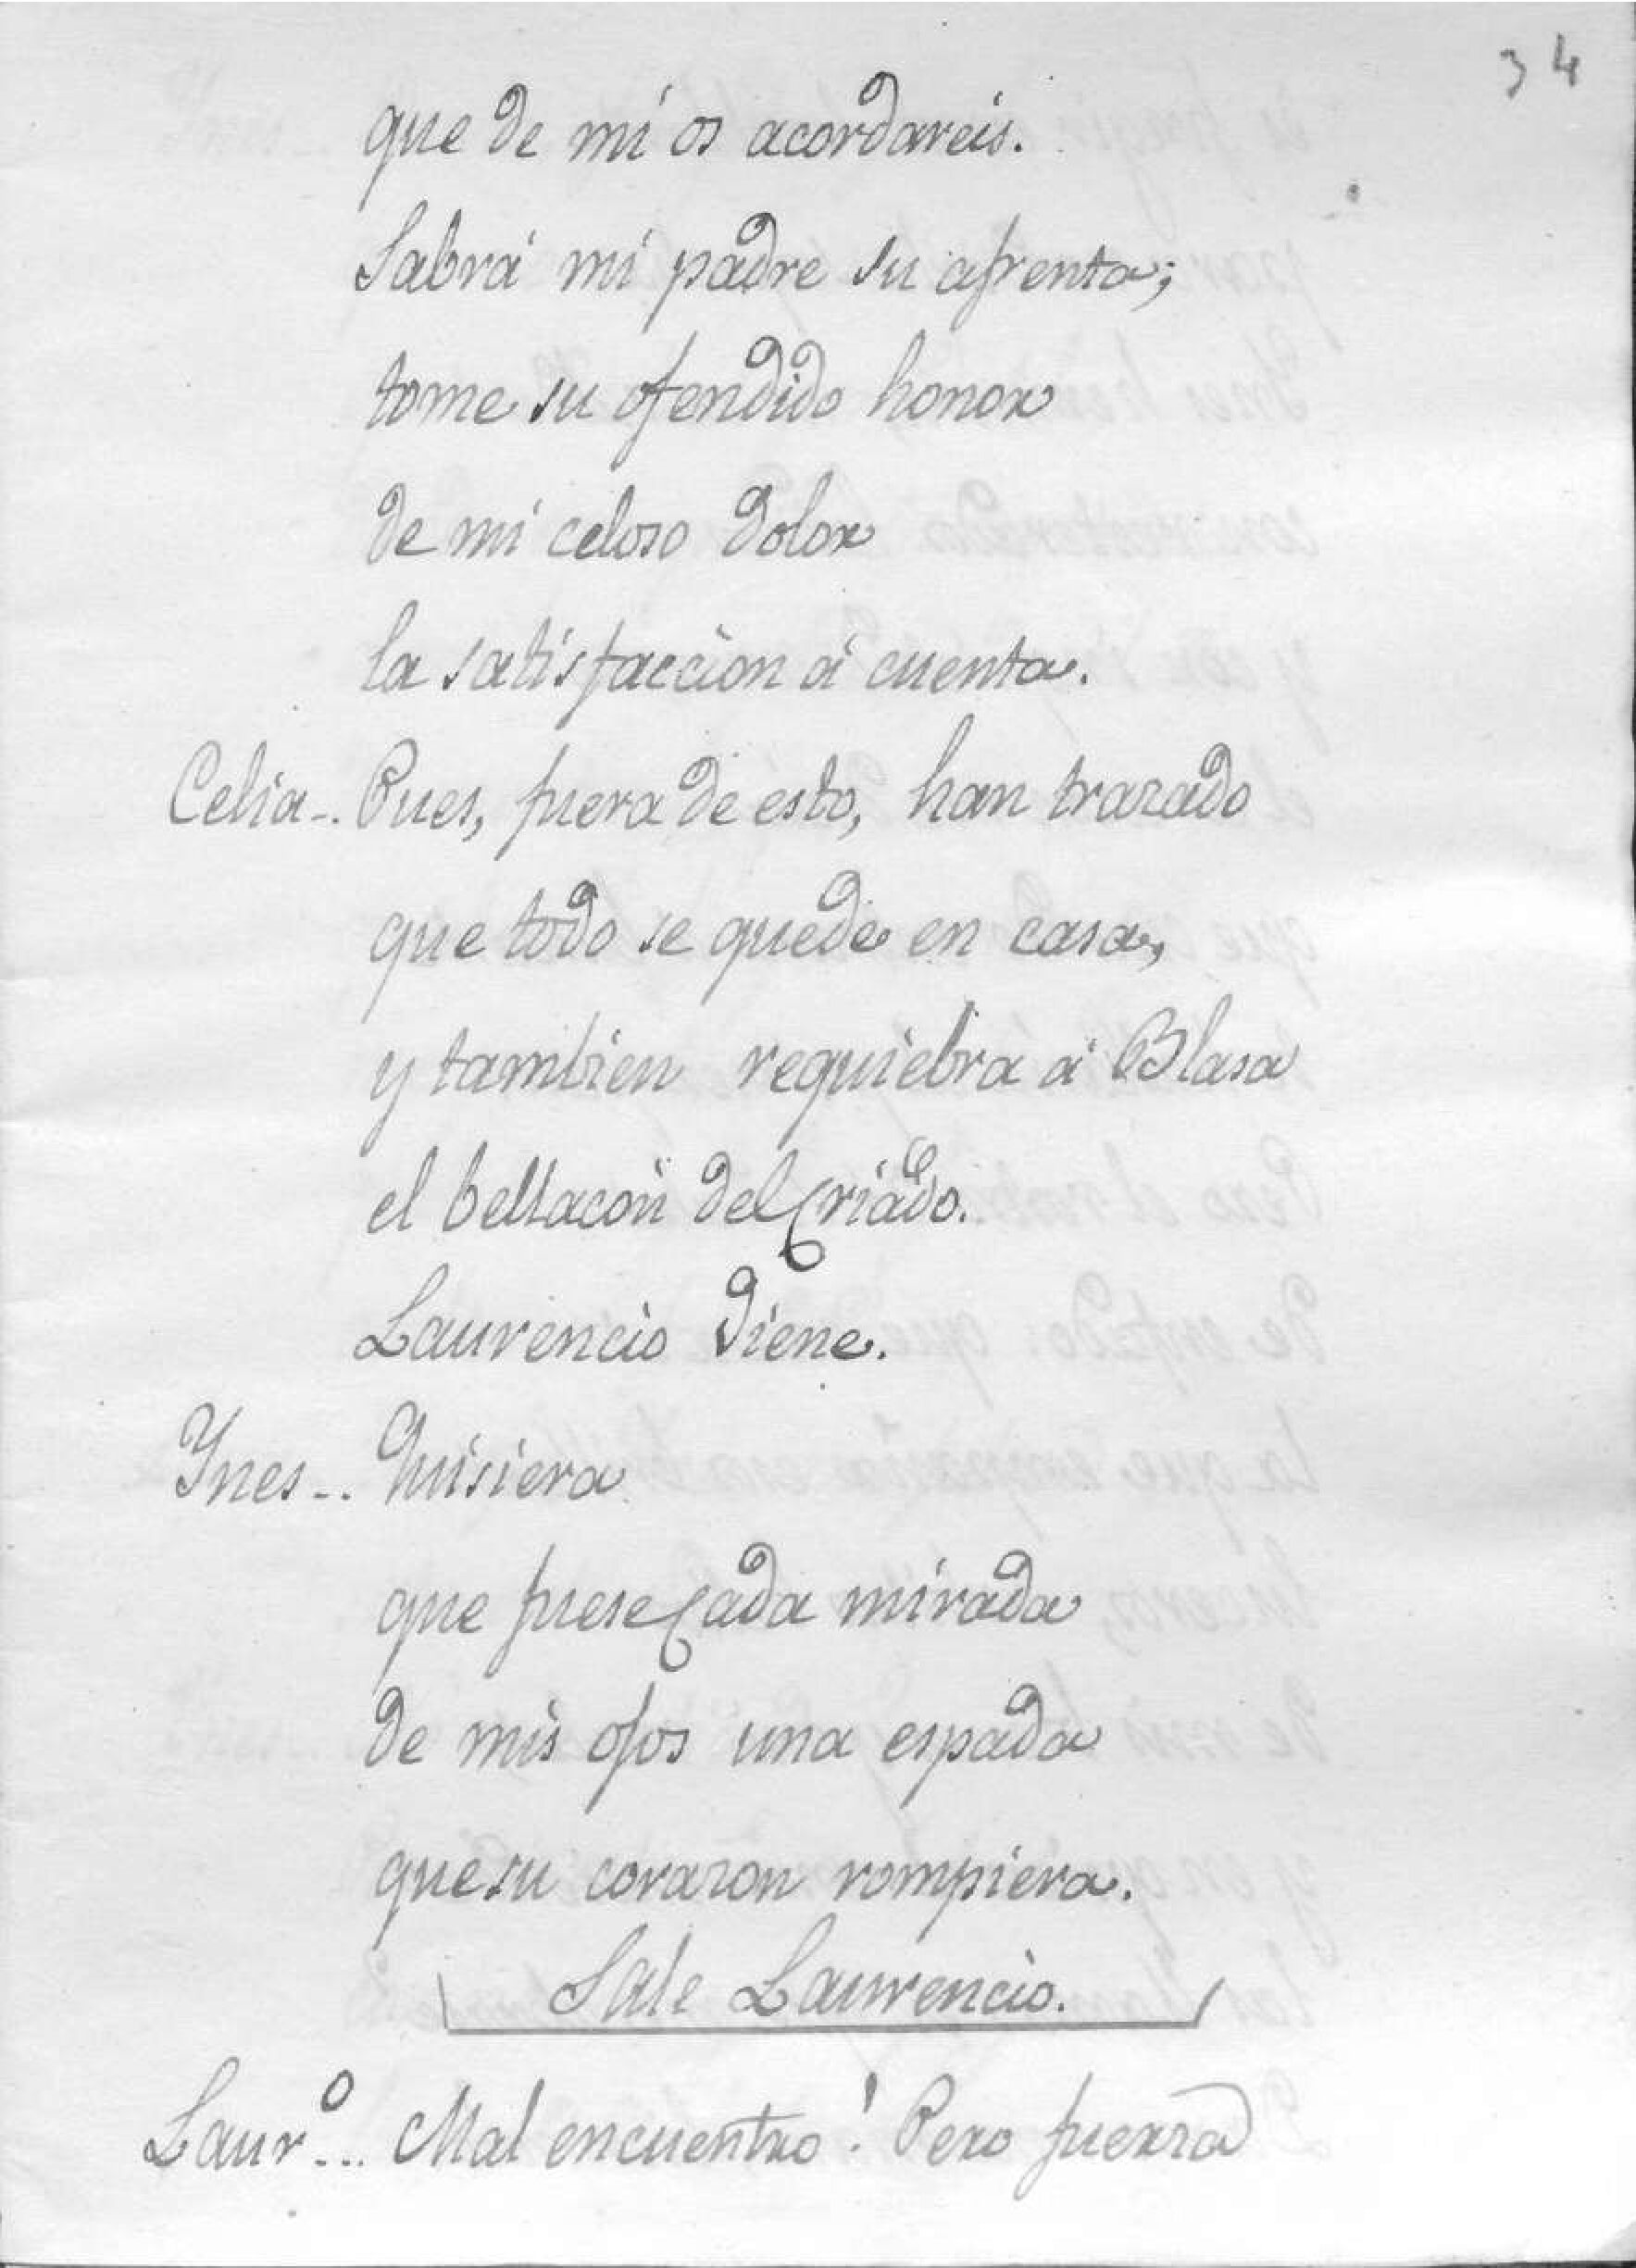 34
que de mi os acordareis.
Sabrá mi padre su afrenta;
tome su ofendido honor
de mi celoso dolor
la satisfaccion á cuenta.
Celia -. Pues, fuera de esto, han trazado
que todo se quede en casa,
y tambien requiebra á Blasa
el bellacon del Criado.
Laurencio viene.
Ynes -.. Quisiera
que fuese cada mirada
de mis ojos una espada
que su corazon rompiera.
Sale Laurencio.
Laurº... Mal encuentro! Pero fuerza